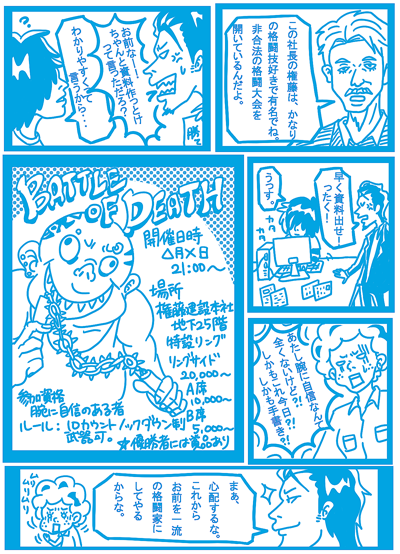 この社長の権藤は、かなり
の格闘技好きで有名でね。
非合法の格闘大会を
開いているんだよ。
お前なー！！
ちゃんと資料作っとけ
って言っただろう？
わかりやすくって
言うから・・
勝て
早く資料出せ！
ったく！
うっす。
カタ
カタ
BATTLE
OF DEATH
開催日時
△月×日
21:00〜
場所
権藤建設本社
地下25階
特設リング
リングサイド
20,000〜
A席
10,000〜
B席
5,000〜
参加資格
腕に自信のある者
ルール：10カウントノックダウン制
武器可。
★優勝者には賞品あり
あたし腕に自信なんて
全くないけど?!
しかもこれ今日?!
しかも手書き?!
まぁ、
心配するな。
これから
お前を一流
の格闘家に
してやる
からな。